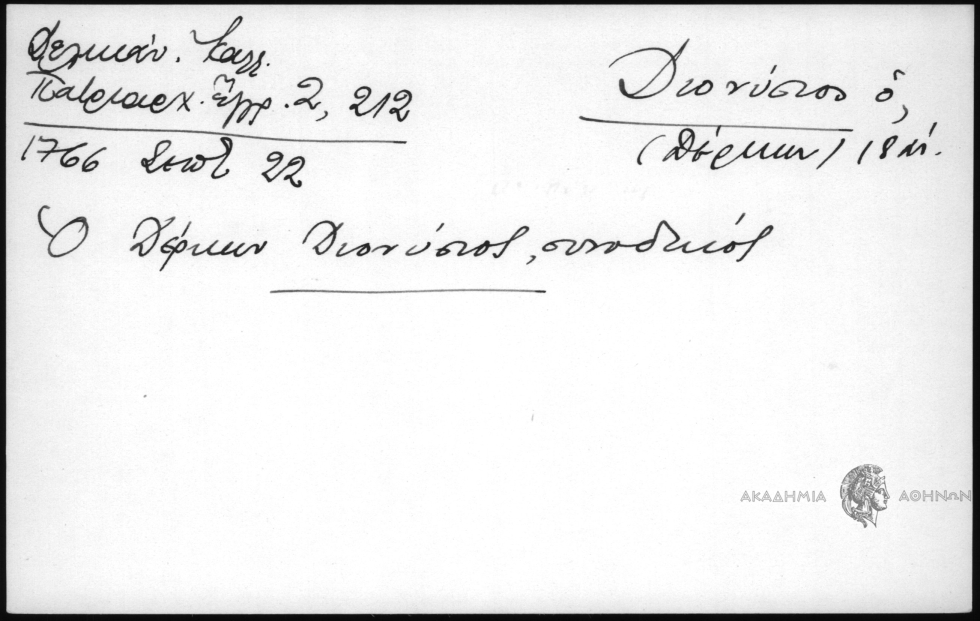 Δελικάν. Καλλ.
Πατριαρχ. Ἔγγρ. 2, 212
1766 Σεπτ 22
Διονύσιος ὁ,
(Δέρκων) 18 αἰ.
Ὁ Δέρκων Διονύσιος, συνοδικός
ΑΚΑΔΗΜΙΑ ΑΘΗΝΩΝ